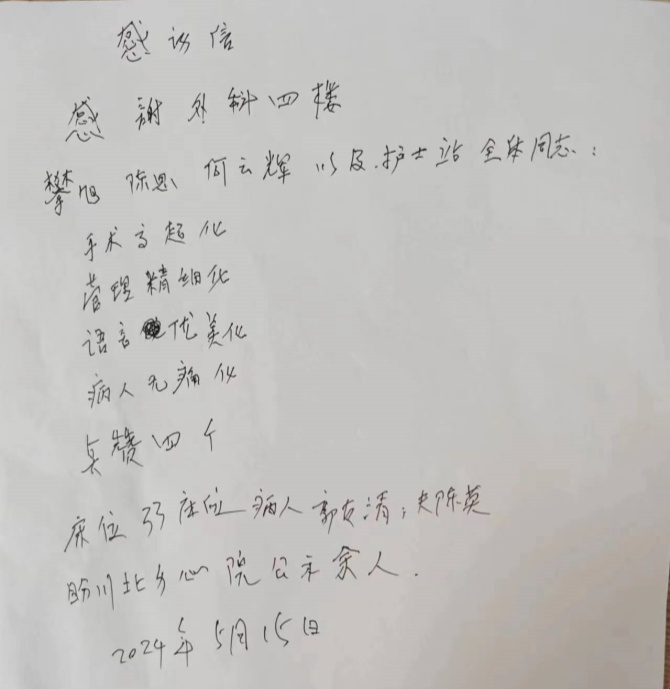 感谢信
感謝外科四楼
攀旭 陈思 何云辉 以及护士站全体同志：
手术高超化
管理精细化
语言优美化
病人无痛化
点赞四个
床位33床位病人郭友清，夫陈英
盼川北 心院公示余人.
2024年5月15日